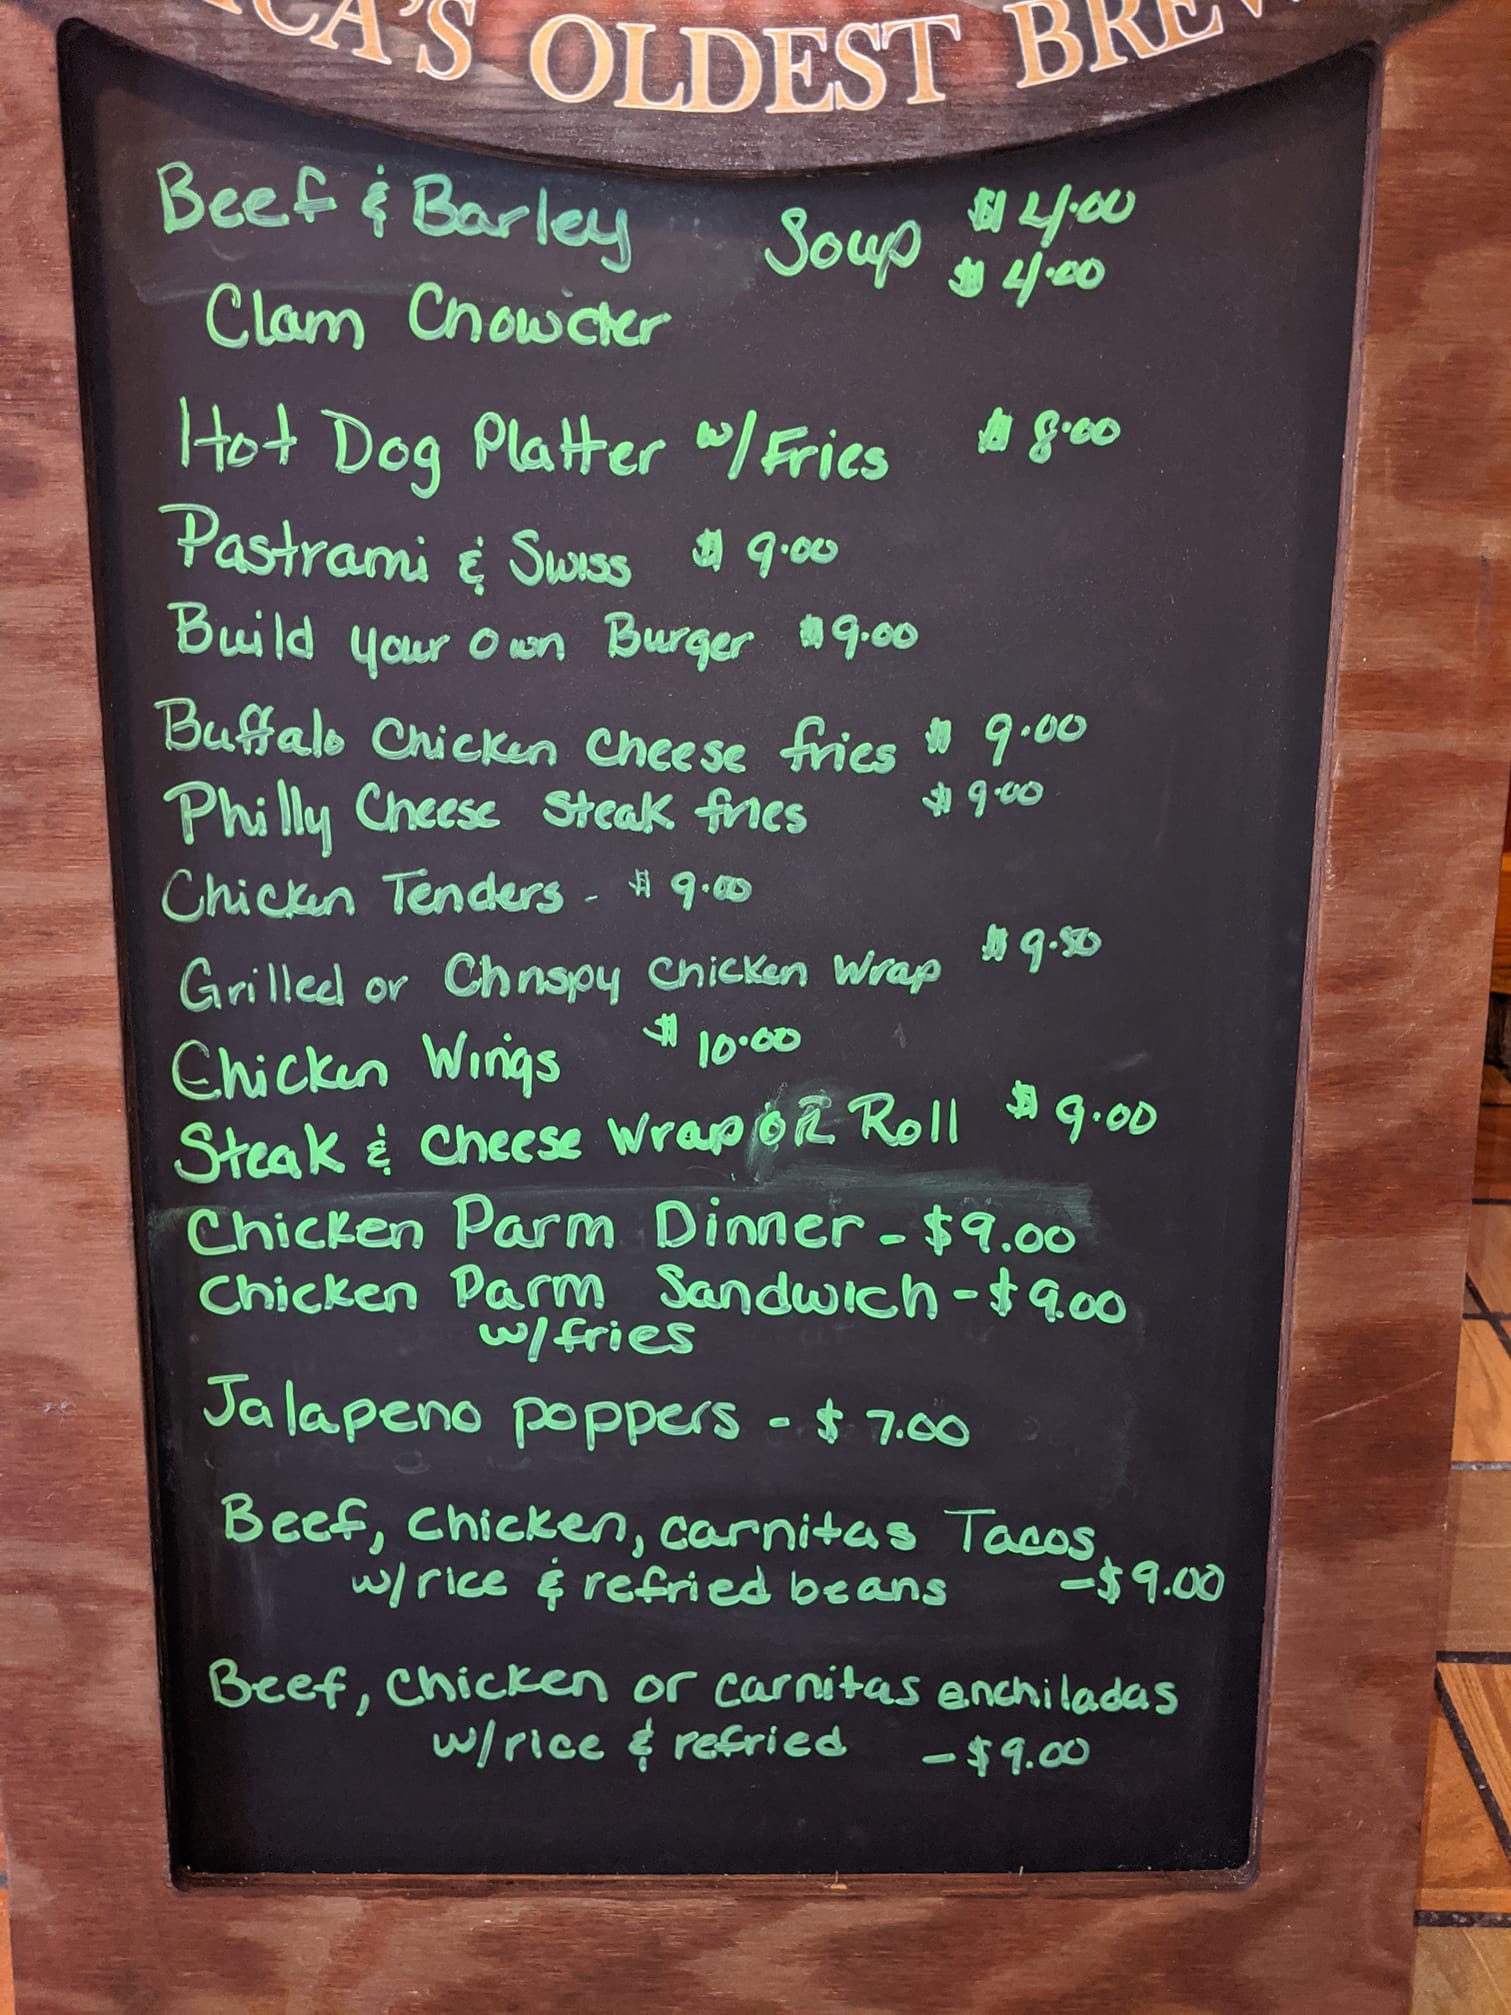 CA'S OLDEST BREW
Beef & Barley Soup $4.00
$4.00
Clam Chowder
Hot Dog Platter w/Fries $8.00
Pastrami & Swiss $9.00
Build your own Burger $9.00
Buffalo Chicken Cheese fries $9.00
Philly Cheese Steak fries $9.00
Chicken Tenders - $9.00
Grilled or Chrispy Chicken Wrap $9.50
Chicken Wings $10.00
Steak & Cheese Wrap OR Roll $9.00
Chicken Parm Dinner - $9.00
Chicken Parm Sandwich - $9.00
w/fries
Jalapeno poppers - $7.00
Beef, chicken, carnitas Tacos
w/rice & refried beans - $9.00
Beef, chicken or carnitas enchiladas
w/rice & refried - $9.00